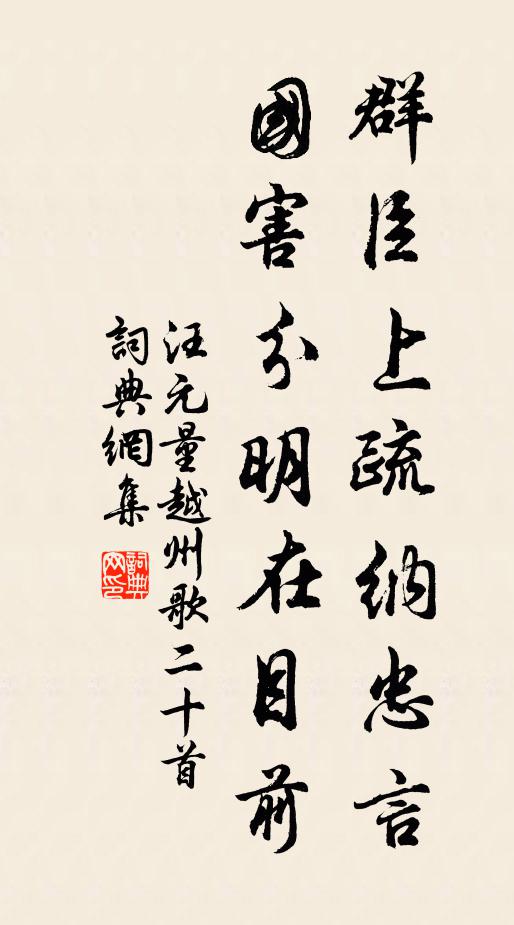 群臣上疏納忠言
國害分明在目前
汪元量越州歌二十首
詞典網集
詞典网印